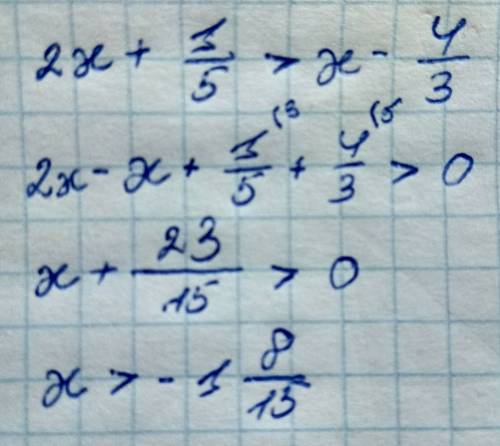 2x + 1/5 > x - 4/3
2x - x + 1/5 (3 + 4/3 (5 > 0
x + 23/15 > 0
x > -1 8/15